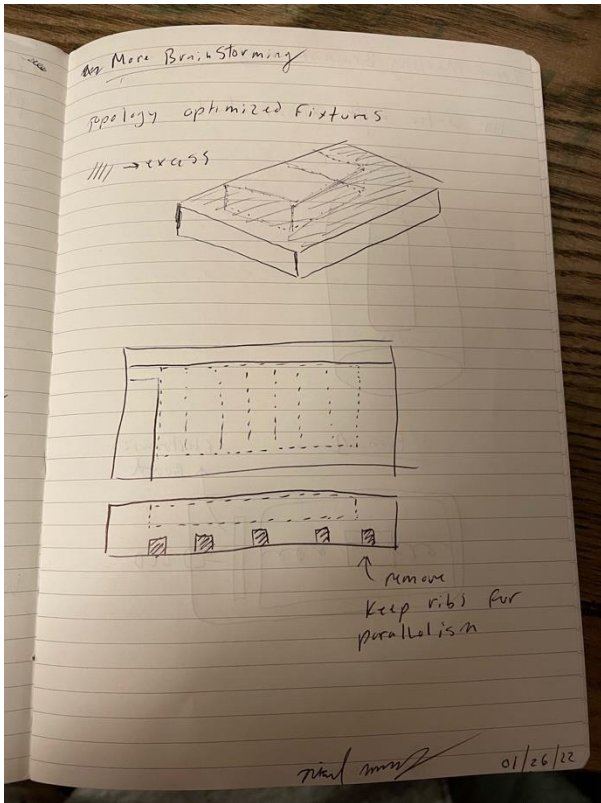 More BrainStorming
Topology optimized Fixtures
//// → excess
remove
Keep ribs for
parallelism
01/26/22